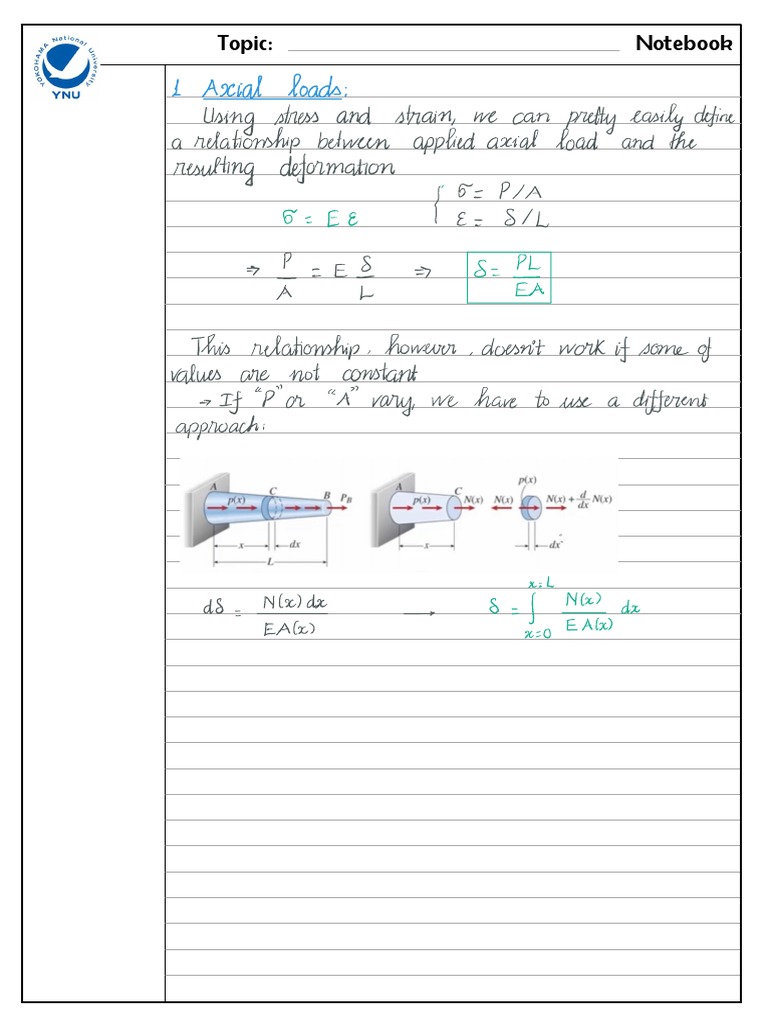 Topic: Notebook
YOKOHAMA National University
YNU
1 Axial loads:
Using stress and strain, we can pretty easily define
a relationship between applied axial load and the
resulting deformation
σ = E ε { σ = P/A
ε = δ/L
⇒ P/A = E δ/L ⇒ δ = PL/EA
This relationship, however, doesn't work if some of
values are not constant
→ If "P" or "A" vary, we have to use a different
approach:
A p(x) C B P_B x dx L
A p(x) C N(x) x
p(x) N(x) N(x) + d/dx N(x) dx
dδ = N(x) dx / EA(x) → δ = ∫_{x=0}^{x=L} N(x) / EA(x) dx